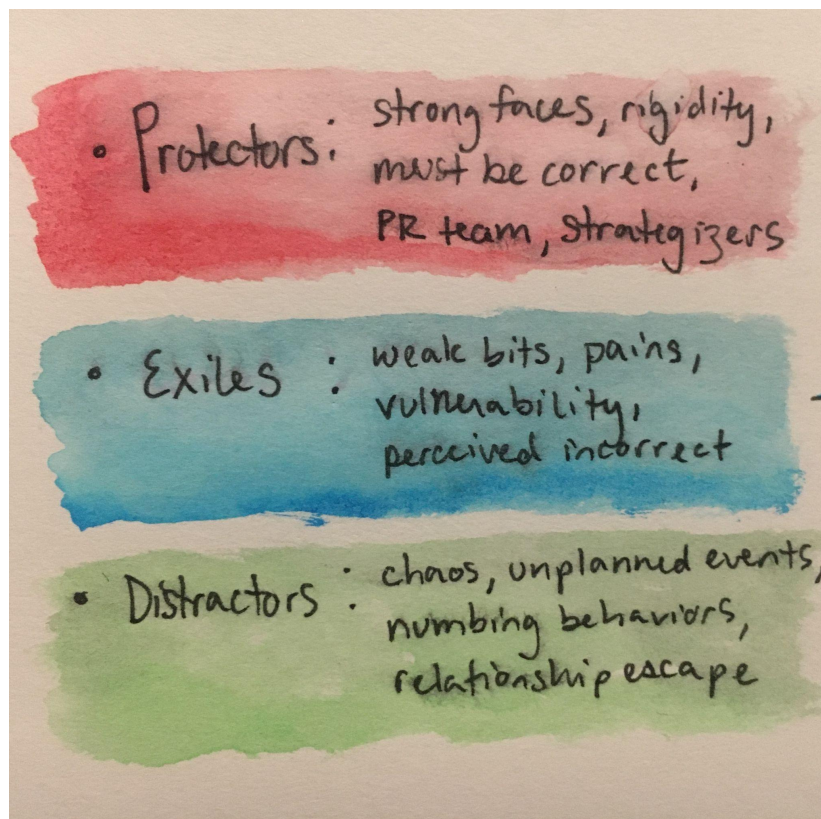 • Protectors: strong faces, rigidity,
must be correct,
PR team, strategizers
• Exiles : weak bits, pains,
vulnerability,
perceived incorrect
• Distractors : chaos, unplanned events,
numbing behaviors,
relationship escape